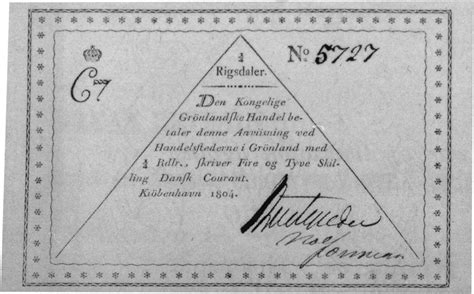 ¼
Rigsdaler.
No 5727
C7
Den Kongelige
Grönlandſke Handel be-
taler denne Anviisning ved
Handelsſtederne i Grönland med
¼ Rdlr., ſkriver Fire og Tyve Skil-
ling Danſk Courant.
Kiöbenhavn 1804.